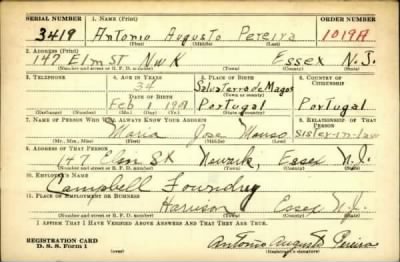 SERIAL NUMBER 1. NAME (Print) ORDER NUMBER
3419 Antonio Augusto Pereira 1019A
(First) (Middle) (Last)
2. ADDRESS (Print)
147 Elm St. Nwk Essex N.J.
(Number and street or R. F. D. number) (Town) (County) (State)
3. TELEPHONE 4. AGE IN YEARS 5. PLACE OF BIRTH 6. COUNTRY OF CITIZENSHIP
34 Salvaterra de Magos
DATE OF BIRTH (Town or county)
Feb Portugal Portugal
(Mo.) (Day) (Yr.) (State or country)
7. NAME OF PERSON WHO WILL ALWAYS KNOW YOUR ADDRESS 8. RELATIONSHIP OF THAT PERSON
Maria Jose sister-in-law
(Mr., Mrs., Miss) (First) (Middle) (Last)
9. ADDRESS OF THAT PERSON
147 Elm St Newark, Essex N.J.
(Number and street or R. F. D. number) (Town) (County) (State)
10. EMPLOYER'S NAME
Campbell Foundry
11. PLACE OF EMPLOYMENT OR BUSINESS
Harrison Essex N.J.
(Number and street or R. F. D. number) (Town) (County) (State)
I AFFIRM THAT I HAVE VERIFIED ABOVE ANSWERS AND THAT THEY ARE TRUE.
REGISTRATION CARD
D. S. S. Form 1 Antonio Augusto Pereira